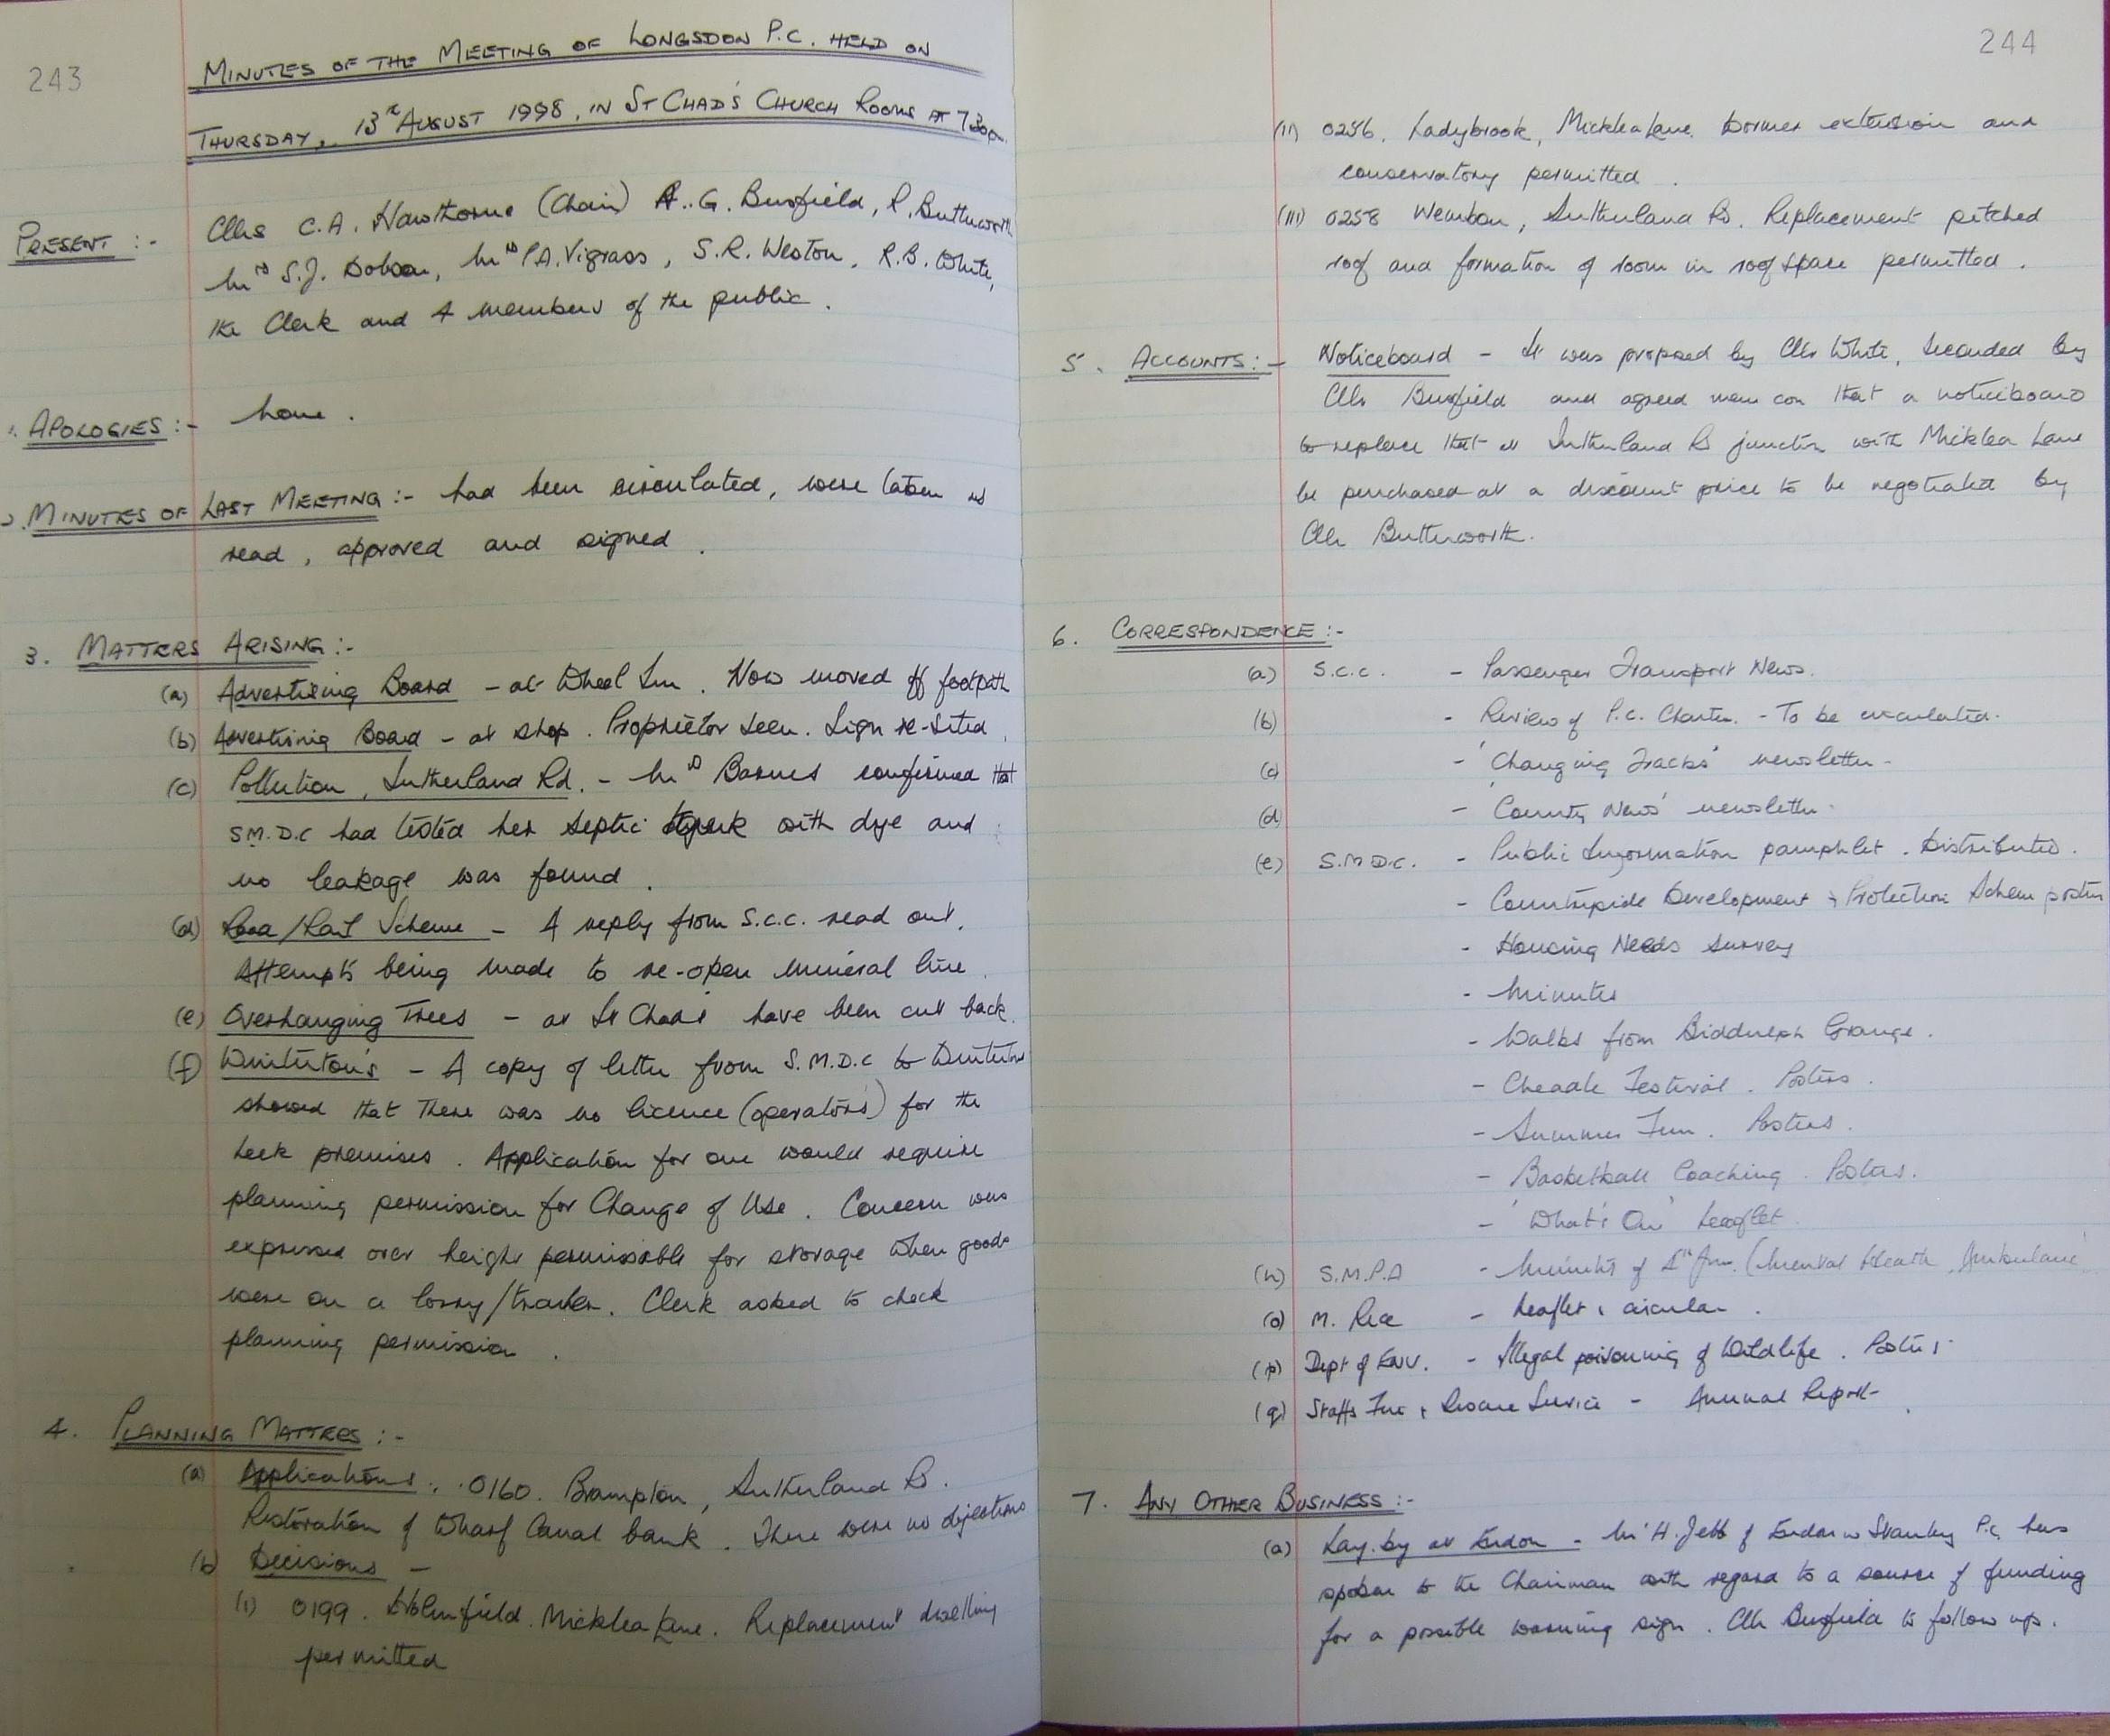 243
MINUTES OF THE MEETING OF LONGSDON P.C. HELD ON
THURSDAY, 13th AUGUST 1998, IN ST CHAD'S CHURCH ROOMS AT 7.30pm.
PRESENT :- Cllrs C.A. Hawthorne (Chair) A.G. Busfield, R. Butterworth
Mrs S.J. Dobson, Mrs P.A. Vigrass, S.R. Weston, R.B. White,
the Clerk and 4 members of the public.
1. APOLOGIES :- None.
2. MINUTES OF LAST MEETING :- had been circulated, were taken as
read, approved and signed.
3. MATTERS ARISING :-
(a) Advertising Board - at Wheel Inn. Now moved off footpath
(b) Advertising Board - at shop. Proprietor seen. Sign re-sited.
(c) Pollution, Sutherland Rd. - Mrs Barnes confirmed that
S.M.D.C had tested her septic tank with dye and
no leakage was found.
(d) Road/Rail Scheme - A reply from S.C.C. read out.
Attempts being made to re-open mineral line.
(e) Overhanging Trees - at St Chad's have been cut back.
(f) Winterton's - A copy of letter from S.M.D.C to Wintertons
showed that there was no licence (operators) for the
Leek premises. Application for one would require
planning permission for Change of Use. Concern was
expressed over height permissible for storage when goods
were on a lorry/trailer. Clerk asked to check
planning permission.
4. PLANNING MATTERS :-
(a) Applications. 0160. Brampton, Sutherland Rd.
Restoration of Wharf Canal bank. There were no objections
(b) Decisions -
(i) 0199. Holmfield. Micklea Lane. Replacement dwelling
permitted
244
(ii) 0256. Ladybrook, Micklea Lane. Dormer extension and
conservatory permitted.
(iii) 0258 Wembon, Sutherland Rd. Replacement pitched
roof and formation of room in roof space permitted.
5. ACCOUNTS :- Noticeboard - It was proposed by Cllr White, seconded by
Cllr Busfield and agreed nem con that a noticeboard
to replace that at Sutherland Rd junction with Micklea Lane
be purchased at a discount price to be negotiated by
Cllr Butterworth.
6. CORRESPONDENCE :-
(a) S.C.C. - Passenger Transport News.
(b) - Review of P.C. Charter. - To be circulated.
(c) - 'Changing Tracks' newsletter -
(d) - 'County News' newsletter.
(e) S.M.D.C. - Public Information pamphlet. Distributed.
- Countryside Development & Protection Scheme poster
- Housing Needs Survey
- Minutes
- Walks from Biddulph Grange.
- Cheadle Festival. Posters.
- Summer Fun. Posters.
- Basketball Coaching. Posters.
- 'What's On' leaflet.
(n) S.M.P.A - Minutes of (Mental Health, Ambulance
(o) M. Rice - Leaflet & circular.
(p) Dept of ENV. - Illegal poisoning of Wildlife. Posters
(q) Staffs Fire & Rescue Service - Annual Report.
7. ANY OTHER BUSINESS :-
(a) Lay-by at Endon - Mr H. Jebb of Endon w Stanley P.C. has
spoken to the Chairman with regard to a source of funding
for a possible warning sign. Cllr Busfield to follow up.